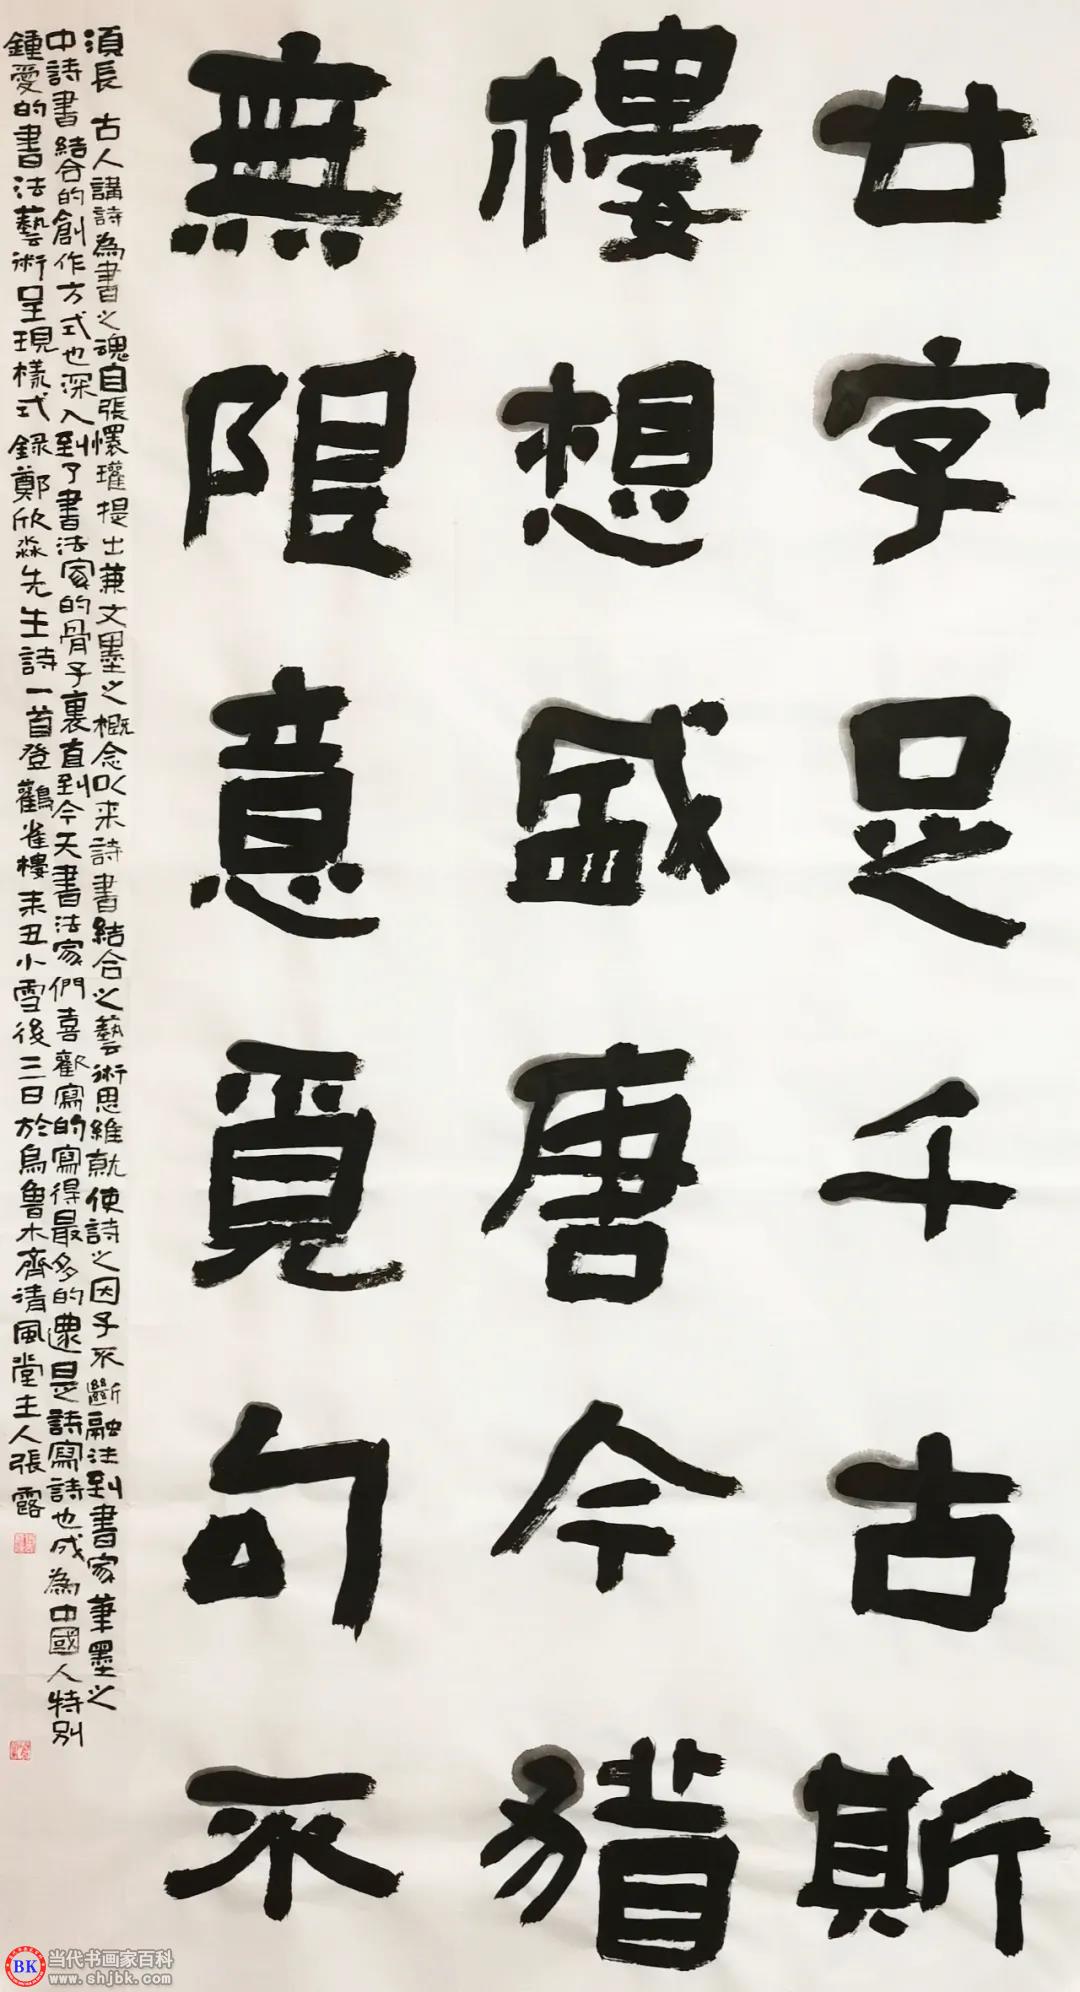 廿字足千古斯
樓想盛唐今猶
無限意覓句不
須長 古人講詩為書之魂自張懷瓘提出兼文墨之概念以来詩書結合之藝術思維就使詩之因子不斷融法到書家筆墨之
中詩書結合的創作方式也深入到了書法家的骨子裏直到今天書法家們喜歡寫的寫得最多的還是詩寫詩也成為中國人特別
鍾愛的書法藝術呈現樣式 録鄭欣淼先生詩一首登鸛雀樓 辛丑小雪後三日於烏魯木齊清風堂主人張露
当代书画家百科
www.shjbk.com
BK